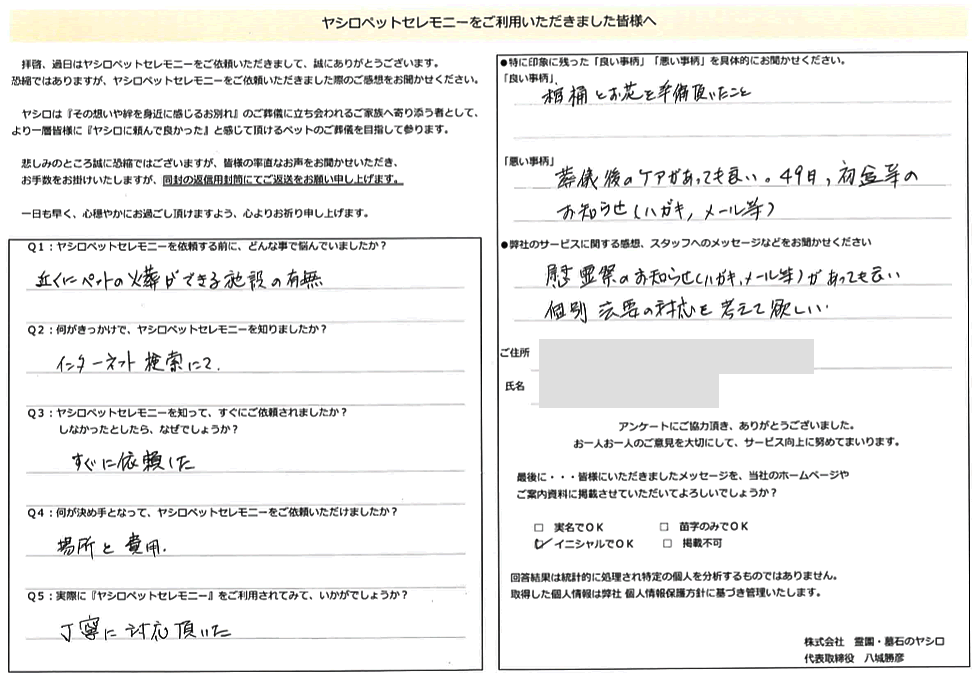 ヤシロペットセレモニーをご利用いただきました皆様へ
拝啓、過日はヤシロペットセレモニーをご依頼いただきまして、誠にありがとうございます。
恐縮ではありますが、ヤシロペットセレモニーをご依頼いただきました際のご感想をお聞かせください。
ヤシロは『その想いや絆を身近に感じるお別れ』のご葬儀に立ち会われるご家族へ寄り添う者として、
より一層皆様に『ヤシロに頼んで良かった』と感じて頂けるペットのご葬儀を目指して参ります。
悲しみのところ誠に恐縮ではございますが、皆様の率直なお声をお聞かせいただき、
お手数をお掛けいたしますが、同封の返信用封筒にてご返送をお願い申し上げます。
一日も早く、心穏やかにお過ごし頂けますよう、心よりお祈り申し上げます。
Q1:ヤシロペットセレモニーを依頼する前に、どんな事で悩んでいましたか?
近くにペットの火葬ができる施設の有無
Q2:何がきっかけで、ヤシロペットセレモニーを知りましたか?
インターネット検索にて.
Q3:ヤシロペットセレモニーを知って、すぐにご依頼されましたか?
しなかったとしたら、なぜでしょうか?
すぐに依頼した
Q4:何が決め手となって、ヤシロペットセレモニーをご依頼いただけましたか?
場所と費用.
Q5:実際に『ヤシロペットセレモニー』をご利用されてみて、いかがでしょうか?
丁寧に対応頂いた
●特に印象に残った「良い事柄」「悪い事柄」を具体的にお聞かせください。
「良い事柄」
棺桶とお花を準備頂いたこと
「悪い事柄」
葬儀後のケアがあっても良い。49日,初盆等の
お知らせ(ハガキ,メール等)
●弊社のサービスに関する感想、スタッフへのメッセージなどをお聞かせください
慰霊祭のお知らせ(ハガキ,メール等)があっても良い
個別法要の対応を考えて欲しい.
ご住所
氏名
アンケートにご協力頂き、ありがとうございました。
お一人お一人のご意見を大切にして、サービス向上に努めてまいります。
最後に・・・皆様にいただきましたメッセージを、当社のホームページや
ご案内資料に掲載させていただいてよろしいでしょうか?
□ 実名でOK □ 苗字のみでOK
☑ イニシャルでOK □ 掲載不可
回答結果は統計的に処理され特定の個人を分析するものではありません。
取得した個人情報は弊社 個人情報保護方針に基づき管理いたします。
株式会社 霊園・墓石のヤシロ
代表取締役 八城勝彦